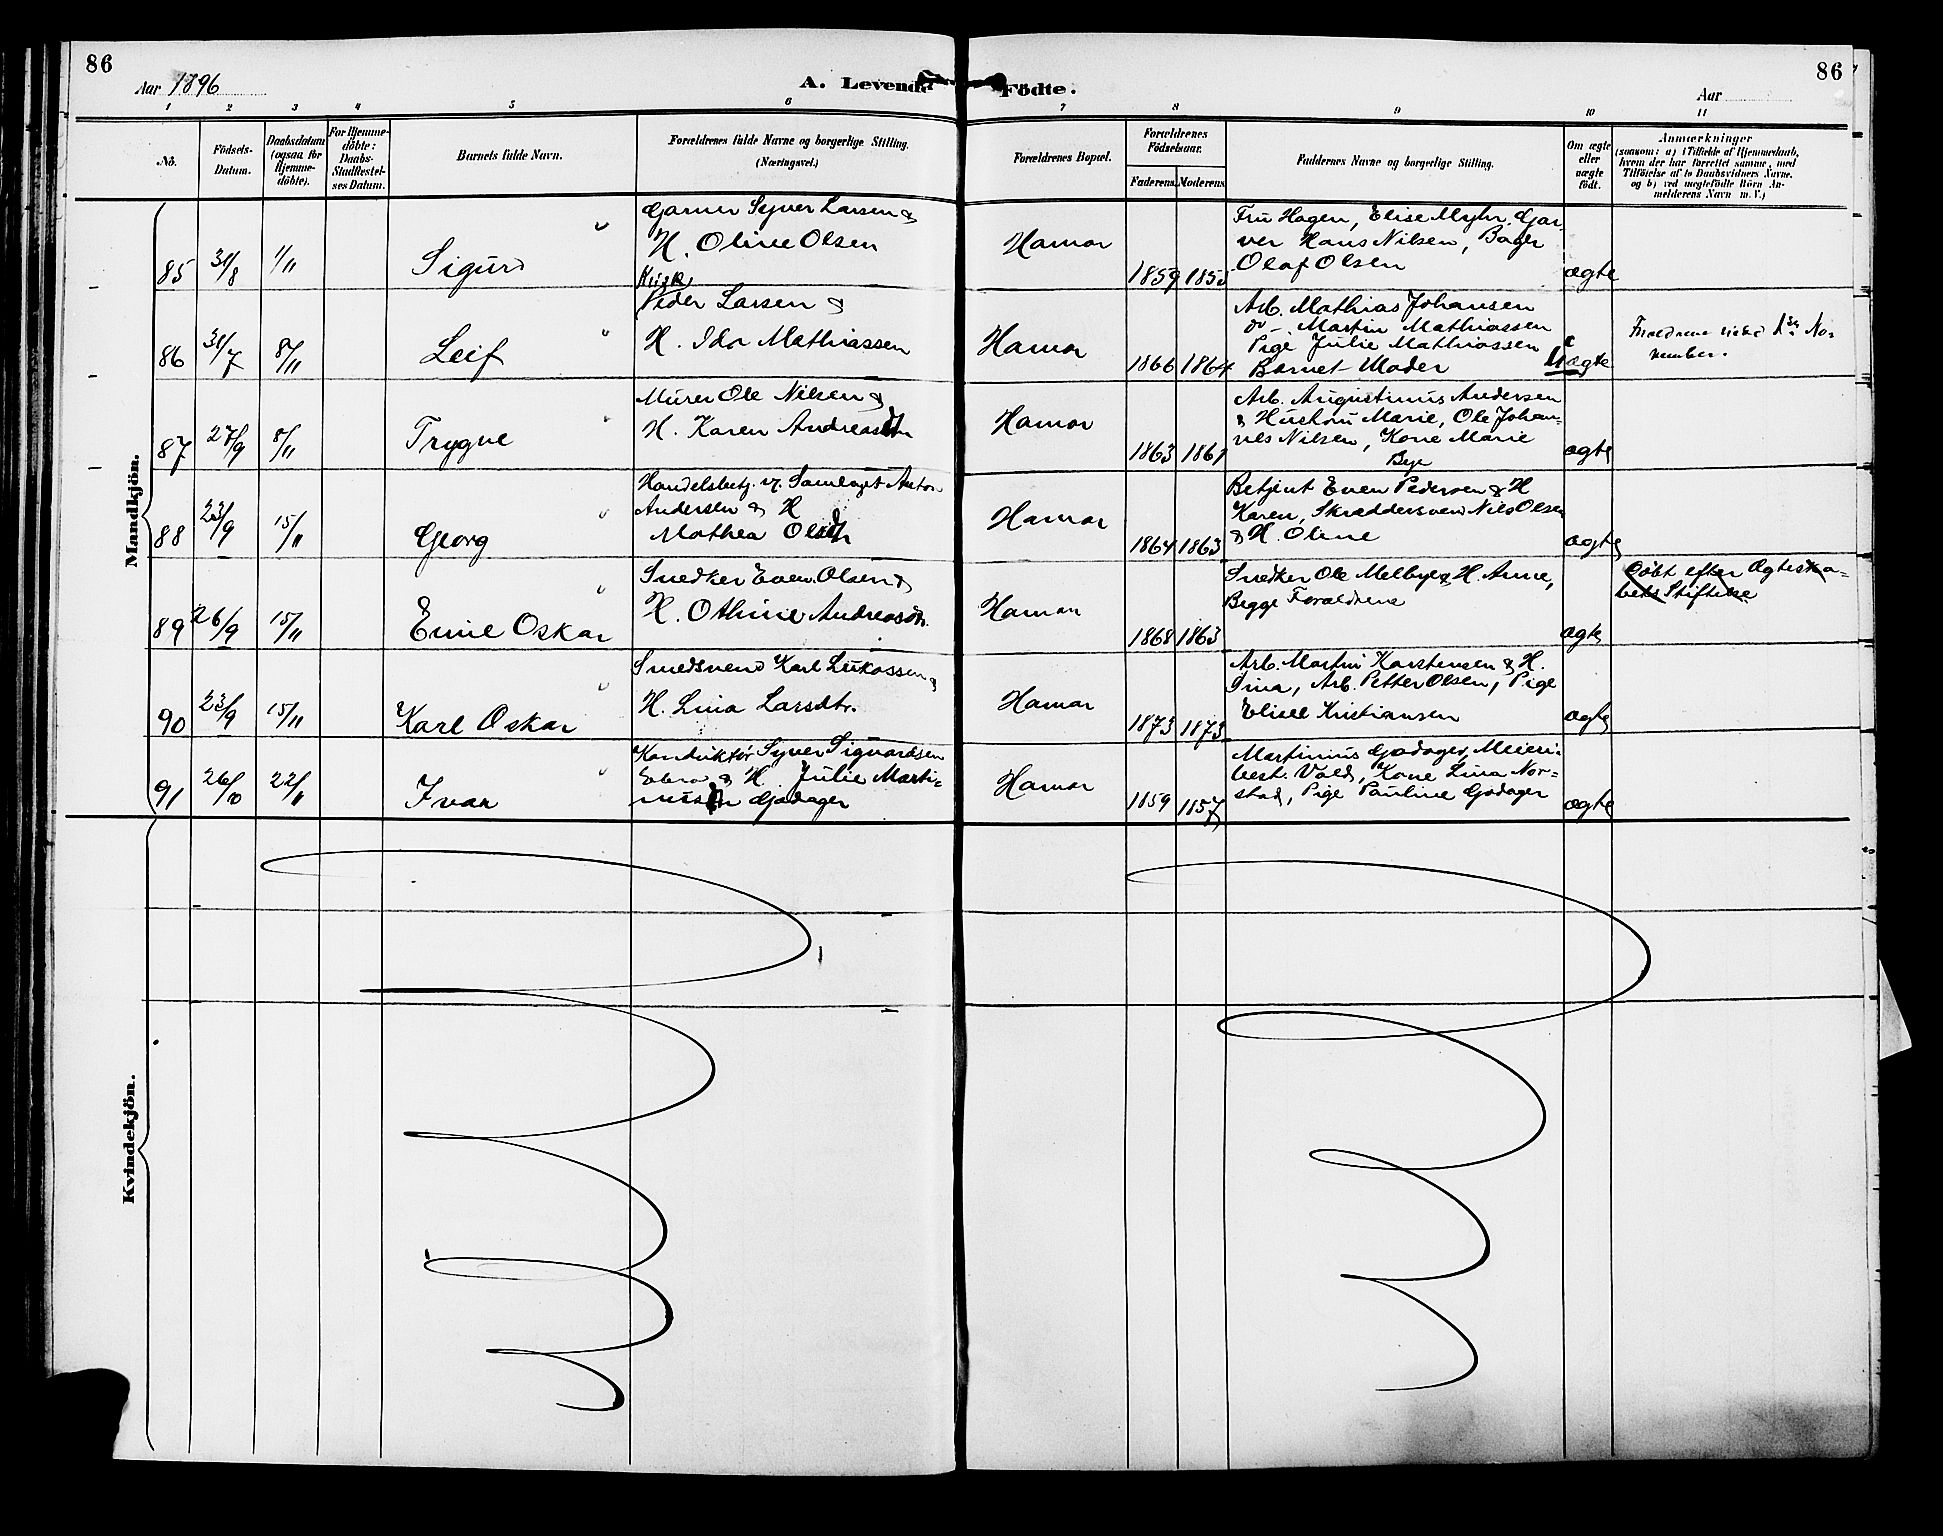 86
Aar 1896
A. Levende
Födte.
86
Aar
1 2 3 4 5 6 7 8 9 10 11
No.
Födsels-
Datum.
Daabsdatum
(ogsaa for
Hjemme-
döbte).
For Hjemme-
döbte:
Daabs-
Stadfæstel-
ses Datum.
Barnets fulde Navn.
Forældrenes fulde Navne og borgerlige Stilling.
(Næringsvei.)
Forældrenes Bopæl.
Forældrenes
Födselsaar.
Faderens Moderens
Faddernes Navne og borgerlige Stilling.
Om ægte
eller
uægte
födt.
Anmærkninger
(saasom: a) i Tilfælde af Hjemmedaab,
hvem der har forrettet samme, med
Tilföielse af to Daabsvidners Navne,
og b) ved uægtefödte Börn An-
melderens Navn m. V.)
Mandkjön.
85 31/8 1/11 Sigurd
Garver Syver Larsen &
H. Oline Olsen
Hamar 1859 1855
Fru Hagen, Elise Myhr, Gar-
ver Hans Nilsen, Bager
Olaf Olsen
ægte
86 31/7 8/11 Leif
Kusk
Peder Larsen &
H. Ida Mathiassen
Hamar 1866 1864
Arb. Mathias Johansen
do - Martin Mathiassen
Pige Julie Mathiassen
Barnets Moder
Uægte
Forældrene viede 1ste No-
vember.
87 27/9 8/11 Trygve
Murer Ole Nilsen &
H. Karen Andreasdtr
Hamar 1863 1861
Arb. Augustinus Andersen
& Hustru Marie, Ole Johan-
nes Nilsen, Kone Marie
Bye
ægte
88 23/9 15/11 Georg
Handelsbetj. v. Samlaget Anton
Andersen & H
Mathea Olsdtr
Hamar 1864 1863
Betjent Even Pedersen & H
Karen, Skræddersvend Nils Olsen
& H. Oline
ægte
89 26/9 15/11 Emil Oskar
Snedker Even Olsen &
H. Othine Andreasdtr.
Hamar 1868 1863
Snedker Ole Melbye & H. Anne,
Begge Forældrene
ægte
Døbt efter Ægteska-
bets Stiftelse
90 23/9 15/11 Karl Oskar
Smedsvend Karl Lukassen &
H. Lina Larsdtr.
Hamar 1873 1873
Arb. Martin Karstensen & H.
Tina, Arb. Petter Olsen, Pige
Elise Kristiansen
ægte
91 26/10 22/11 Ivar
Konduktør Syver Siguardsen
& H. Julie Marti-
nusdtr Gjødager
Hamar 1859 1857
Martinius Gjødager, Meieri-
best. Vold, Kone Lina Nor-
stad, Pige Pauline Gjødager
ægte
Kvindekjön.